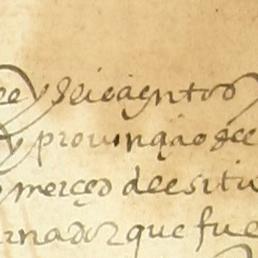 y seicientos
y provinçia de
merçed de esitio
rnador que fue